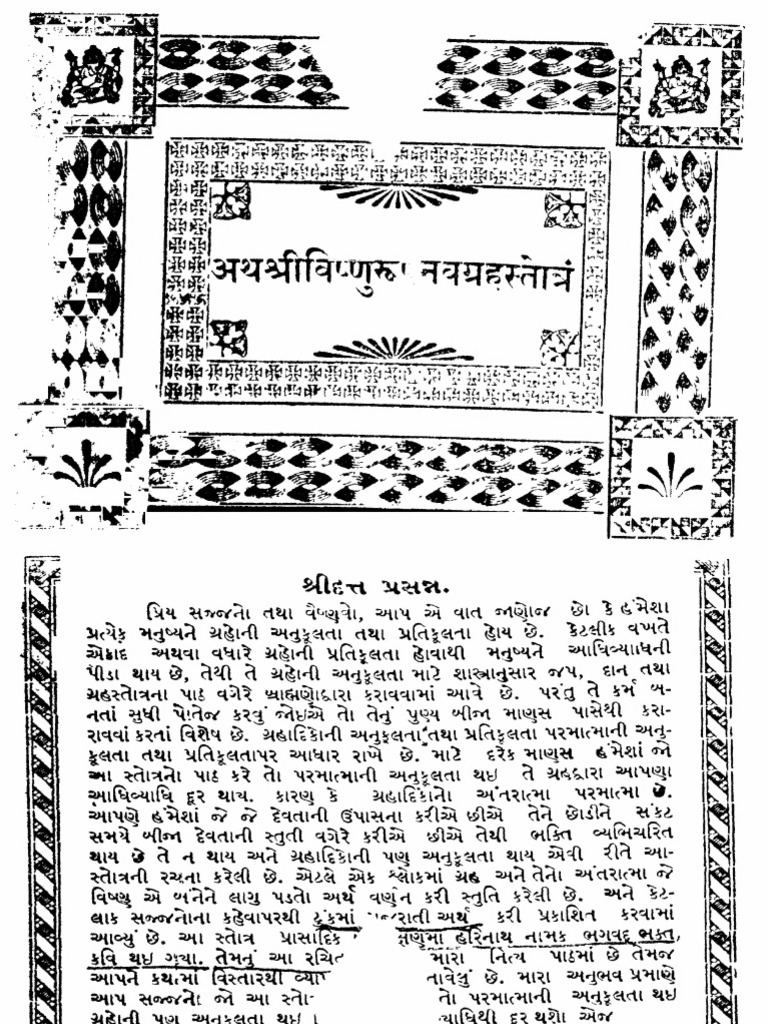 अथश्रीविष्णुरू नवग्रहस्तोत्रं
શ્રીદત્ત પ્રસન્ન.
પ્રિય સજ્જનો તથા વૈષ્ણવો, આપ એ વાત જાણોજ છો કે હંમેશા
પ્રત્યેક મનુષ્યને ગ્રહોની અનુકૂલતા તથા પ્રતિકૂલતા હોય છે. કેટલીક વખતે
એકાદ અથવા વધારે ગ્રહોની પ્રતિકૂલતા હોવાથી મનુષ્યને આધિવ્યાધની
પીડા થાય છે, તેથી તે ગ્રહોની અનુકૂલતા માટે શાસ્ત્રાનુસાર જપ, દાન તથા
ગ્રહસ્તોત્રના પાઠ વગેરે બ્રાહ્મણોદ્વારા કરાવવામાં આવે છે. પરંતુ તે કર્મ બ-
નતાં સુધી પોતેજ કરવું જોઇએ તો તેનું પુણ્ય બીજા માણસ પાસેથી કરા-
રાવવાં કરતાં વિશેષ છે. ગ્રહાદિકોની અનુકૂલતા તથા પ્રતિકૂલતા પરમાત્માની અનુ-
કૂલતા તથા પ્રતિકૂલતાપર આધાર રાખે છે. માટે દરેક માણસ હંમેશાં જો
આ સ્તોત્રનો પાઠ કરે તો પરમાત્માની અનુકૂલતા થઇ તે ગ્રહદ્વારા આપણા
આધિવ્યાધિ દૂર થાય. કારણ કે ગ્રહાદિકોનો અંતરાત્મા પરમાત્મા છે.
આપણે હંમેશાં જે જે દેવતાની ઉપાસના કરીએ છીએ તેને છોડીને સંકટ
સમયે બીજા દેવતાની સ્તુતી વગેરે કરીએ છીએ તેથી ભક્તિ વ્યભિચરિત
થાય છે તે ન થાય અને ગ્રહાદિકોની પણ અનુકૂલતા થાય એવી રીતે આ-
સ્તોત્રની રચના કરેલી છે. એટલે એક શ્લોકમાં ગ્રહ અને તેનો અંતરાત્મા જે
વિષ્ણુ એ બંનેને લાગુ પડતો અર્થ વર્ણન કરી સ્તુતિ કરેલી છે. અને કેટ-
લાક સજ્જનોના કહેવાપરથી ટુંકમાં જરાતી અર્થ કરી પ્રકાશિત કરવામાં
આવ્યું છે. આ સ્તોત્ર પ્રાસાદિક ક્ષણમાં હરિનાથ નામક ભગવદ્ ભક્ત,
કવિ થઇ ગયા. તેમનું આ રચિત મારા નિત્ય પાઠમાં છે તેમજ
આપને કથામાં વિસ્તારથી વ્યા તાવેલું છે. મારા અનુભવ પ્રમાણે
આપ સજ્જનો જો આ સ્તો તો પરમાત્માની અનુકૂલતા થઇ
ગ્રહોની પણ અનુકૂલતા થઇ વ્યાધિથી દૂર થશો એજ